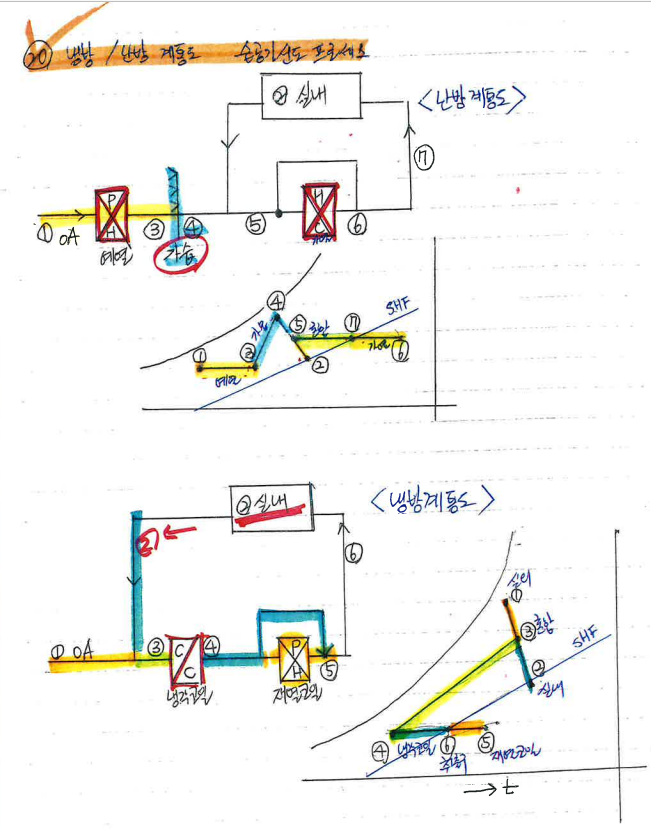 ⑳ 냉방 / 난방 계통도 습공기선도 프로세스
② 실내
<난방계통도>
⑦
P
H
H
C
① OA
③
④
⑤
⑥
예열
가습
가열
④
SHF
가습
⑤
혼합
⑦
①
③
②
가열
⑥
예열
② 실내
<냉방계통도>
②
⑥
실외
①
③ 혼합
SHF
① OA
③
C
C
④
P
H
⑤
②
실내
냉각코일
재열코일
④
냉각코일
⑥
⑤
재열코일
취출
→ t